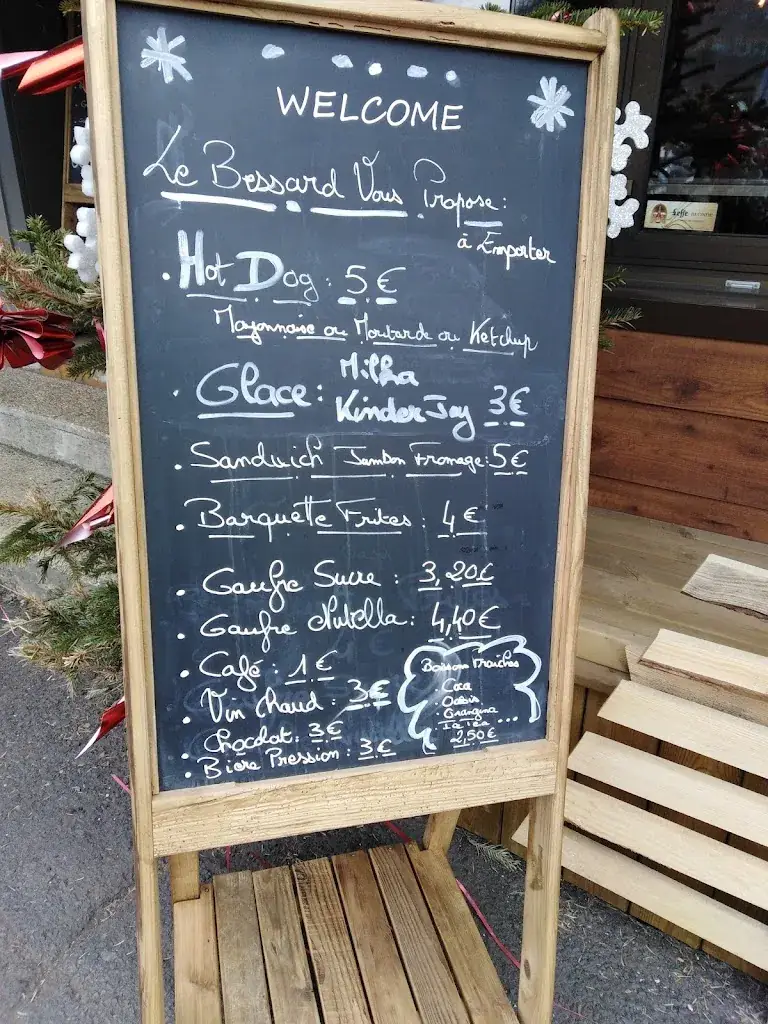 WELCOME
Le Bessard Vous Propose:
à Emporter
• Hot Dog: 5€
Mayonnaise ou Moutarde ou Ketchup
• Glace: Milka
Kinder Joy 3€
• Sandwich Jambon Fromage: 5€
• Barquette Frites: 4€
• Gaufre Sucre: 3,20€
• Gaufre Nutella: 4,40€
• Café: 1€
• Vin Chaud: 3€
• Chocolat: 3€
• Biere Pression: 3€
Boissons Fraîches
• Coca
• Oasis
• Orangina
Ice Tea ...
2,50€
Leffe